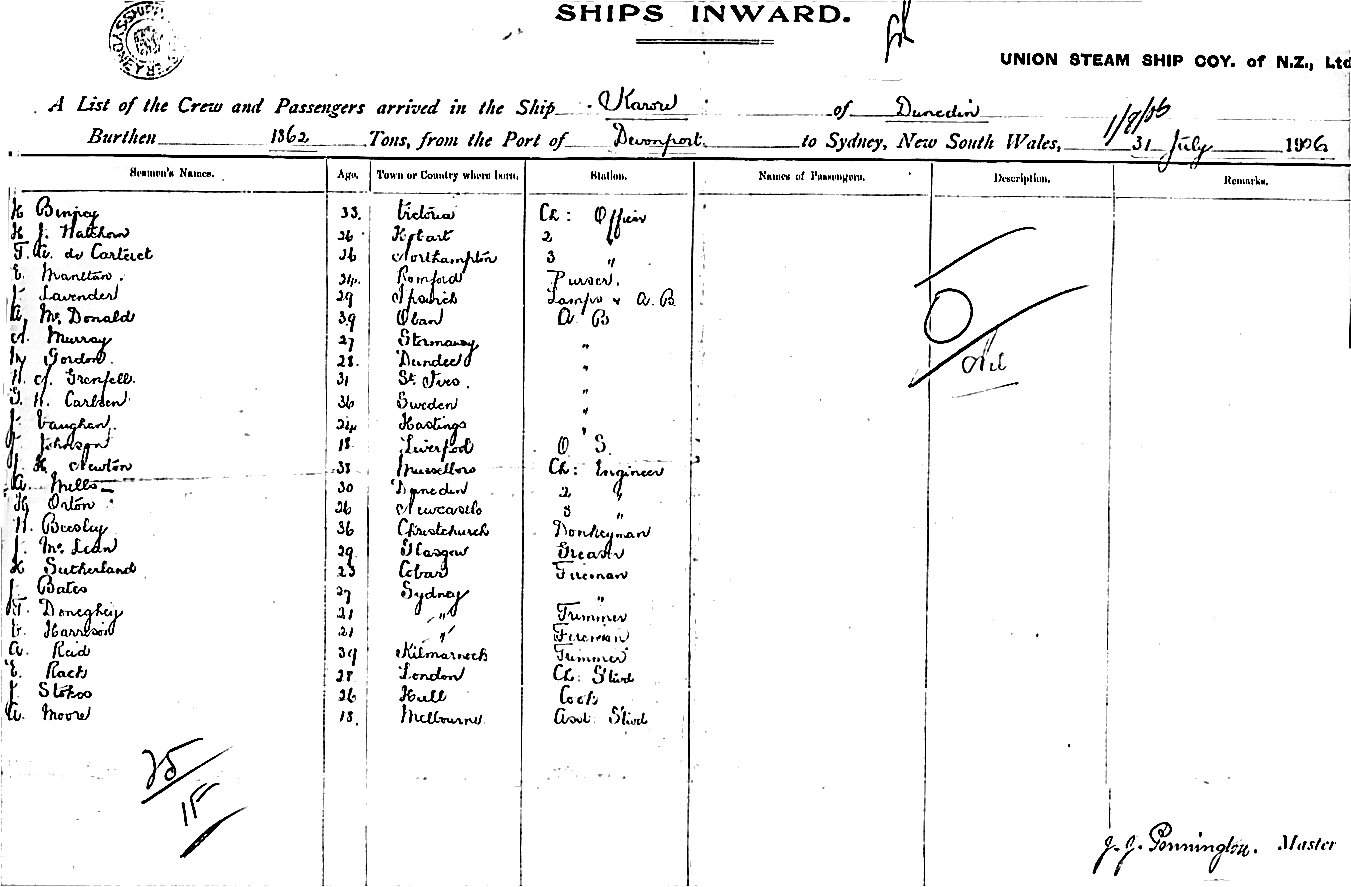 SHIPS INWARD.
UNION STEAM SHIP COY. of N.Z., Ltd
A List of the Crew and Passengers arrived in the Ship Karori of Dunedin
1/8/06
Burthen 1862 Tons, from the Port of Devonport. to Sydney, New South Wales, 31 July 1906
Seamen's Names. Age. Town or Country where born. Station. Names of Passengers. Description. Remarks.
H 33. Victoria Ch: Officer
H J. 26 Hobart 2 "
T. A. de Carteret 26 Northampton 3 "
E. Mantton. 24. Romford Purser.
J. Lavender 29 Ipswich Lamps & A. B
A. Mc Donald 39 Oban A B
A. Murray 27 Stornaway "
W Gordon. 28. Dundee "
N. J. Grenfell. 31 St. Ives. "
G. H. Carlsen 36 Sweden "
J. Vaughan. 24 Hastings "
J. Johnson 18. Liverpool O S.
J. H. Newton 38 Ch: Engineer
A. Mills 30 Dunedin 2 "
H Orton 26 Newcastle 3 "
H. Beesley 36 Christchurch Donkeyman
J. Mc Lean 29. Glasgow Greaser
H Sutherland 23 Cobar Fireman
J. Bates 27 Sydney "
T. Doneghey 21 " Trimmer
V. Harrison 21 " Fireman
A. Reid 39 Kilmarnock Trimmer
E. Rack 28 London Ch. Stwd
J. Stokes 26 Hull Cook
A. Moore 18. Melbourne Asst. Stwd
Nil
25
J. J. Pennington. Master